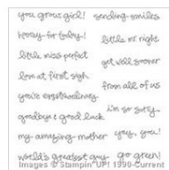 you grow girl!
sending smiles
hooray for today!
little mr right
little miss perfect
get well sooner
love at first sigh
from all of us
you're extraordinary
i'm so sorry
goodbye & good luck
yay, you!
my amazing mother
world's greatest guy
go green!
Images © Stampin' UP! 1990-Current